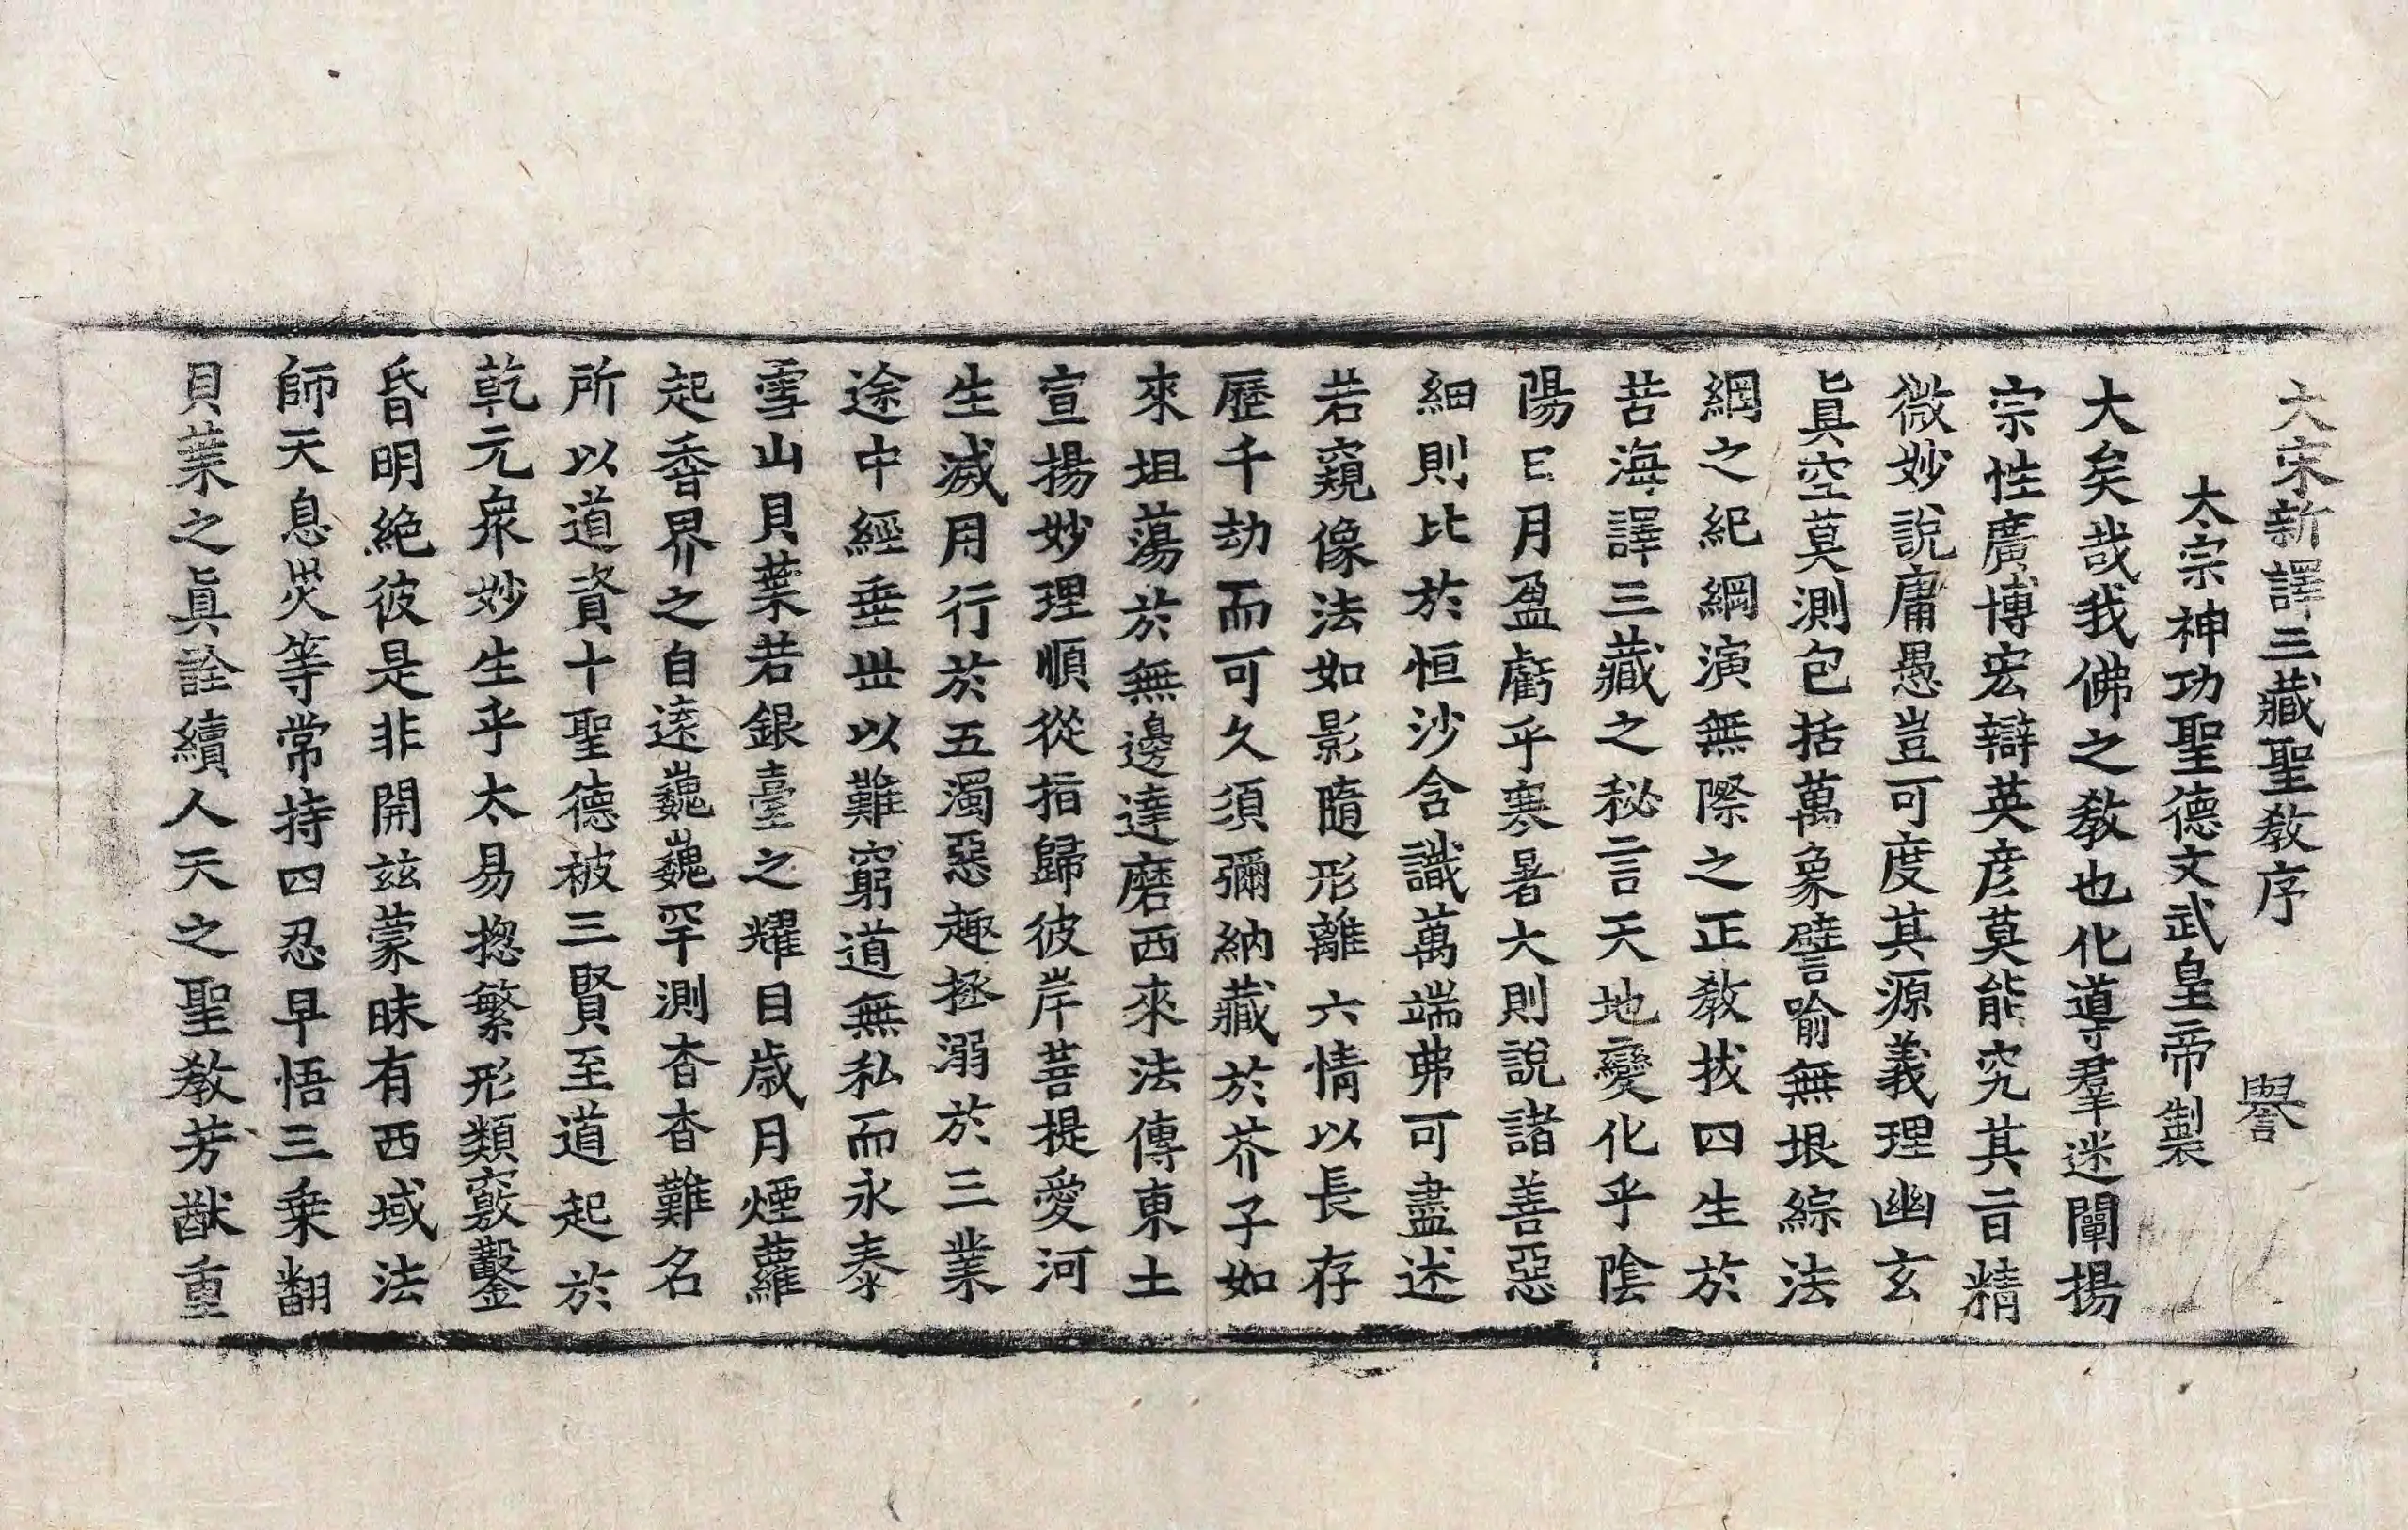 大宋新譯三藏聖教序 譽
太宗神功聖德文武皇帝製
大矣哉我佛之教也化導羣迷闡揚
宗性廣博宏辯英彦莫能究其旨精
微妙說庸愚豈可度其源義理幽玄
眞空莫測包括萬象譬喻無垠綜法
網之紀綱演無際之正教拔四生於
苦海譯三藏之秘言天地變化乎陰
陽日月盈虧乎寒暑大則說諸善惡
細則比於恒沙含識萬端弗可盡述
若窺像法如影隨形離六情以長存
歷千劫而可久須彌納藏於芥子如
來坦蕩於無邊達磨西來法傳東土
宣揚妙理順從指歸彼岸菩提愛河
生滅用行於五濁惡趣拯溺於三業
途中經垂世以難窮道無私而永泰
雪山貝葉若銀臺之耀目歲月煙蘿
起香界之自遠巍巍罕測杳杳難名
所以道資十聖德被三賢至道起於
乾元衆妙生乎太易揔繁形類竅鑿
昏明絶彼是非開茲蒙昧有西域法
師天息災等常持四忍早悟三乗翻
貝葉之眞詮續人天之聖教芳猷重